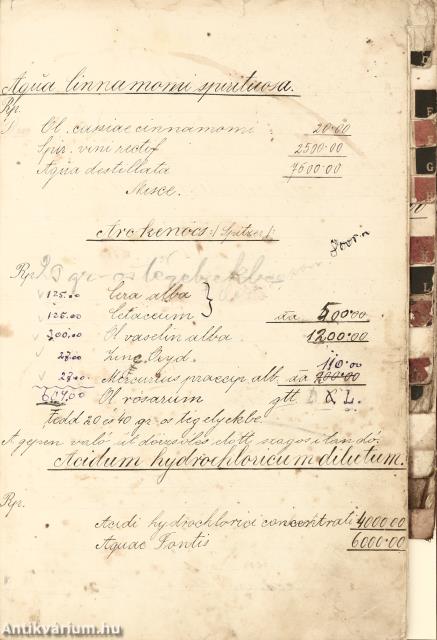 Aqua Cinnamomi spirituosa.
Rp.
Ol. cassiae cinnamomi : 20.00
Spir. vini rectif 2500.00
Aqua destillata 7500.00
Misce.
Arckenőcs :/ Spitzer /:
Rp.
125.00 Cera alba
125.00 Cetaceum āā 500.00
300.00 Ol vaselin alba. 1200.00
27.00 Zinc. Oxyd. 110.00
27.00 Mercurius praecip alb. āā 200.00
604.00 Ol rosarum gtt. L.
Tedd 20 és 40 gr-os tégelyekbe.
A gépen való út dörzsölés előtt szagositandó.
Acidum hydrochloricum dilutum.
Rp.
Acidi hydrochlorici concentrati 4000.00
Aquae Fontis 6000.00
D
E
G
Antikvárium.hu